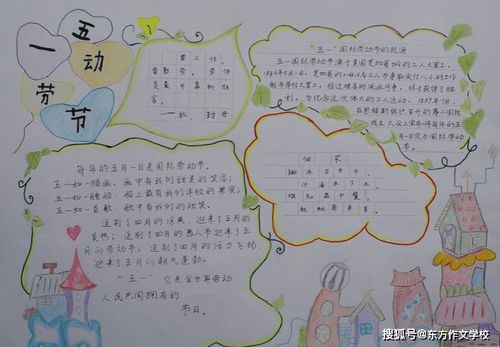 五一
劳动节
要工作,
要勤劳,劳作
是最可靠的财
富。
——拉·封丹
"五一"国际劳动节的起源
五一国际劳动节源于美国芝加哥城的工人大罢工,
1886年5月1日,芝加哥的
工人为争取实行八小时工作
制而举行大罢工,经过艰苦的流血斗争,终于获得了胜
利。为纪念这次伟大的工人运动,1889年7月,
第二国际
成立大会上宣布将每年的五
月一日定为国际劳动节
每年的五月一日是国际劳动节。
五一如一幅画,画中有我们甜美的笑容;
五一如一艘船,船上载有我们丰收的果实;
五一如一首歌,歌中有我们的欢笑。
送别了四月的清爽,迎来了五月的
炎热;送别了四月的愚人节迎来了五
月的劳动节;送别了四月的活力飞扬,
迎来了五月的朝气蓬勃。
"五一"它是全世界劳动
人民共同拥有的
节日。
悯农
锄禾日当午,
汗滴禾下土。
谁知盘中餐,
粒粒皆辛苦。
搜狐号@东方作文学校